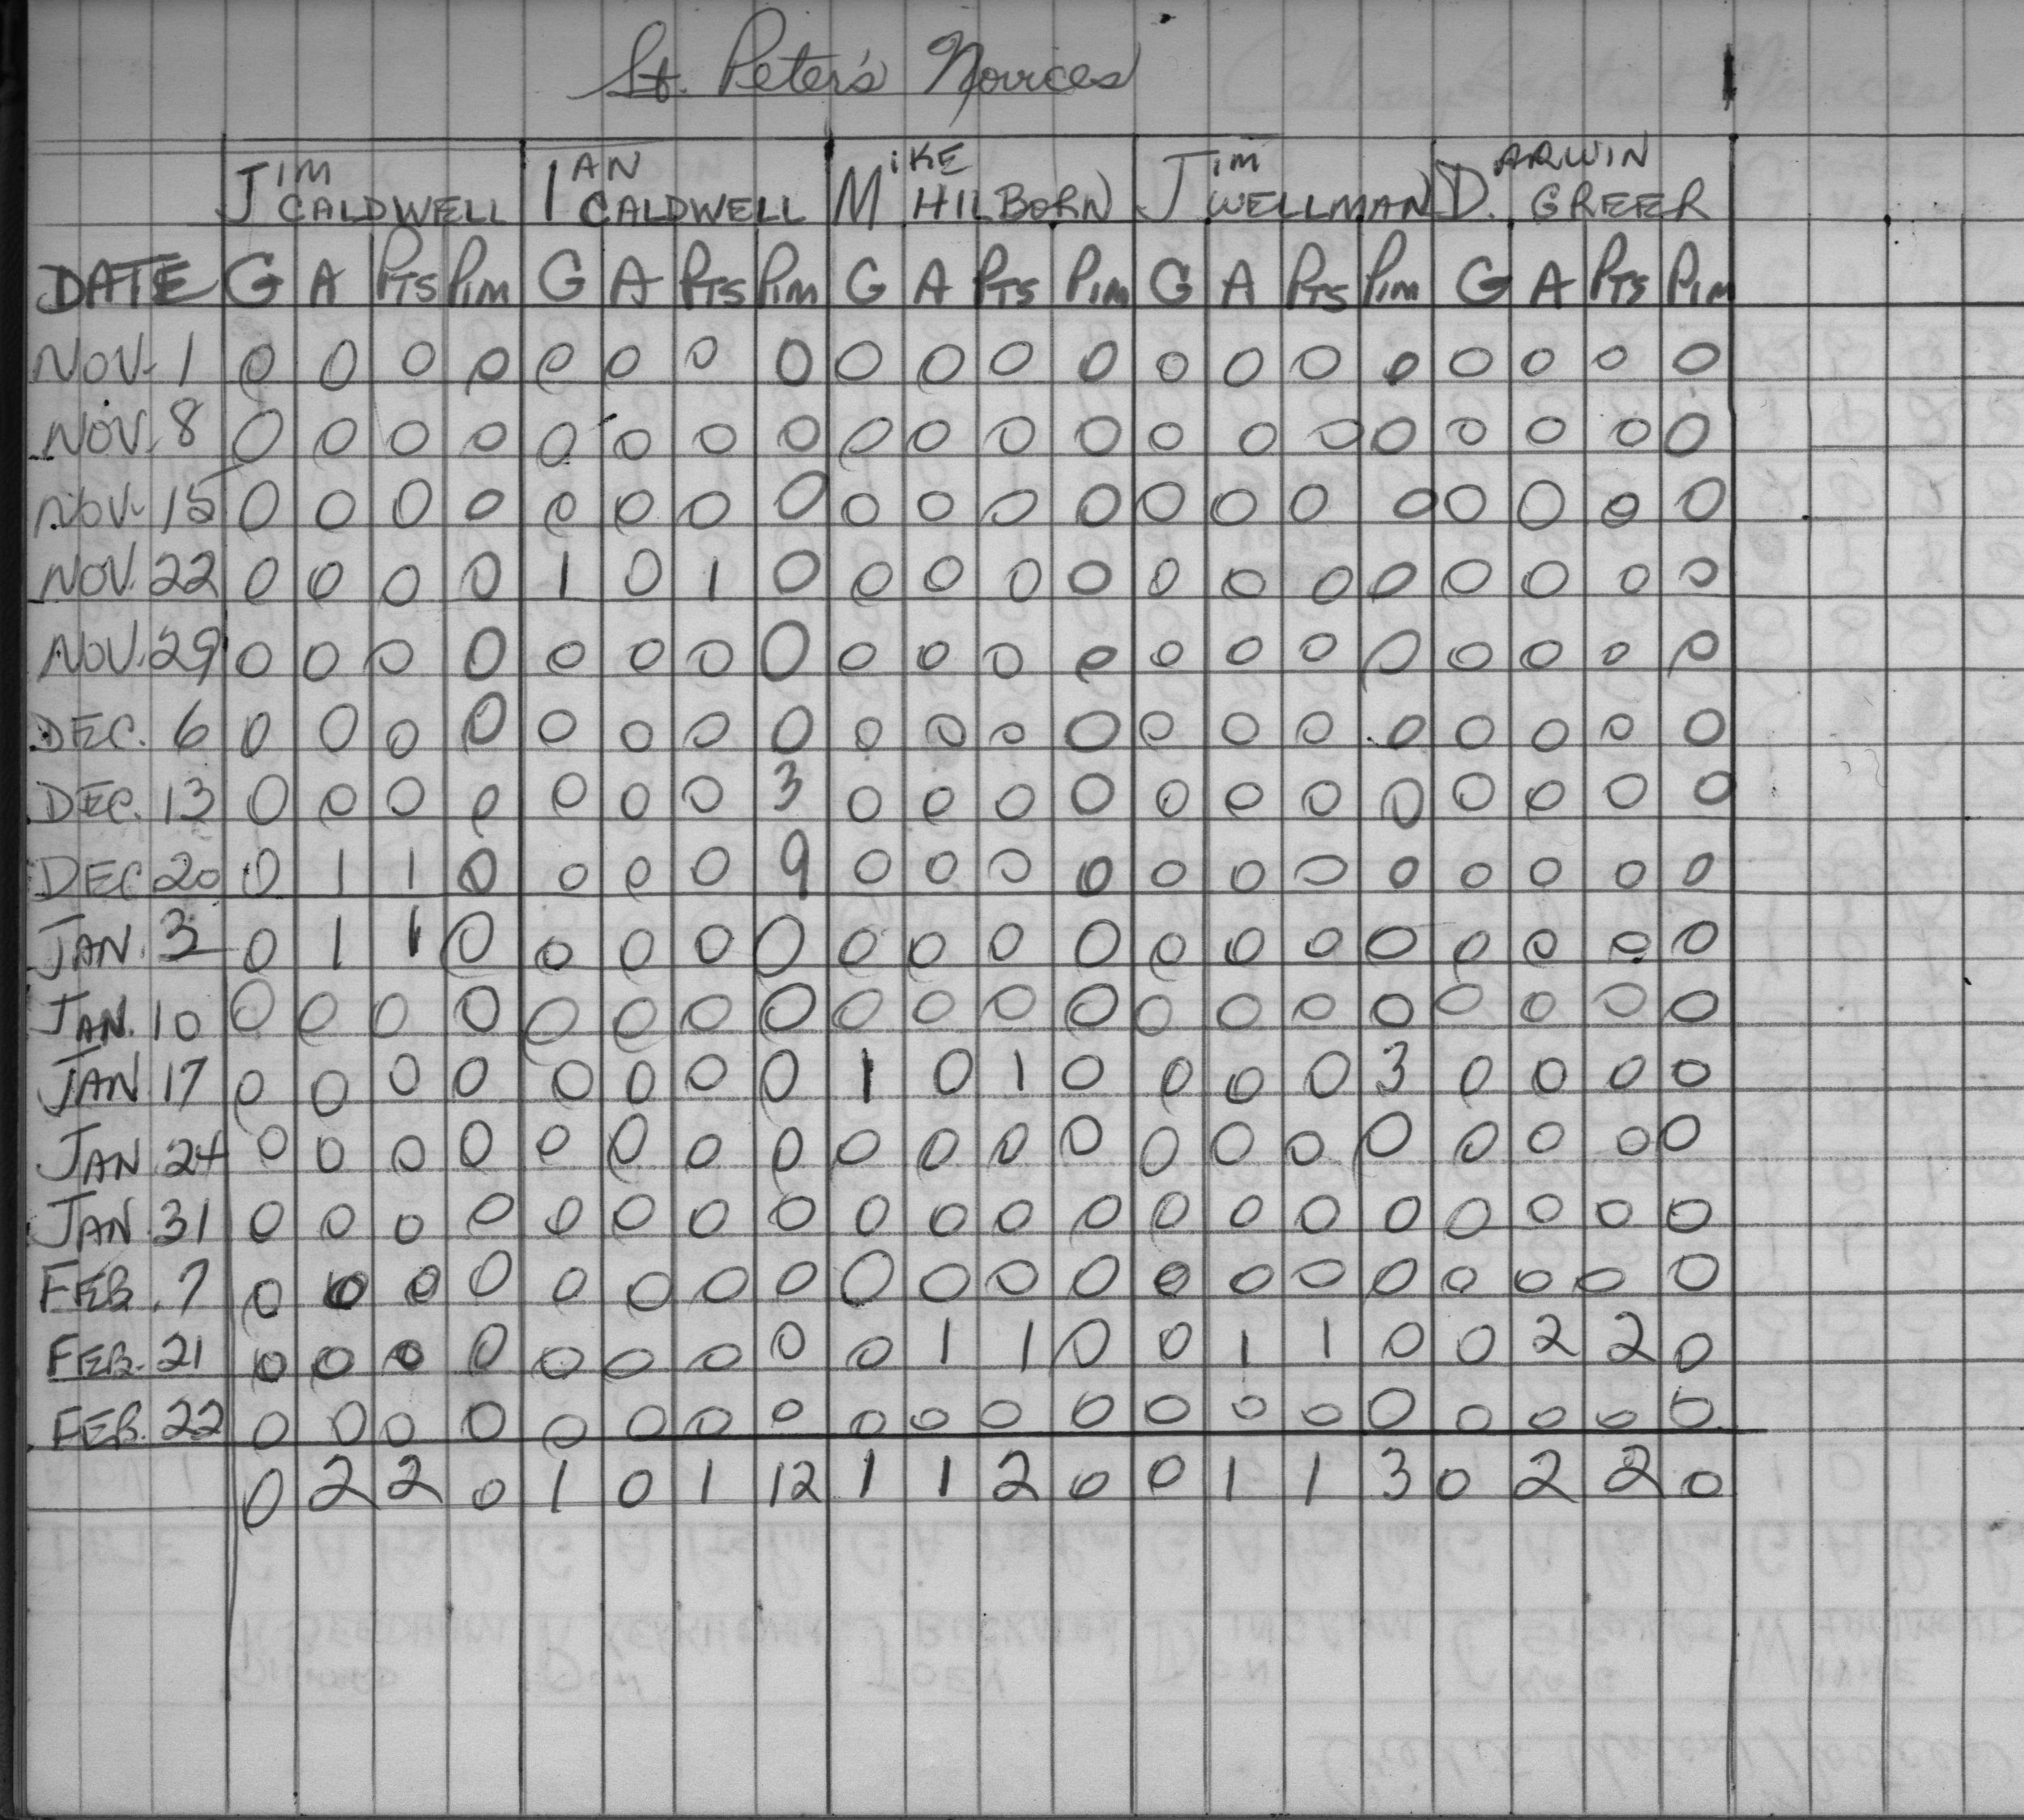 St. Peter's Novices
JIM CALDWELL IAN CALDWELL MIKE HILBORN JIM WELLMAN DARWIN GREER
DATE G A PTS PIM G A PTS PIM G A PTS PIM G A PTS PIM G A PTS PIM
NOV. 1 0 0 0 0 0 0 0 0 0 0 0 0 0 0 0 0 0 0 0 0
NOV. 8 0 0 0 0 0 0 0 0 0 0 0 0 0 0 0 0 0 0 0 0
NOV. 15 0 0 0 0 0 0 0 0 0 0 0 0 0 0 0 0 0 0 0 0
NOV. 22 0 0 0 0 1 0 1 0 0 0 0 0 0 0 0 0 0 0 0 0
NOV. 29 0 0 0 0 0 0 0 0 0 0 0 0 0 0 0 0 0 0 0 0
DEC. 6 0 0 0 0 0 0 0 0 0 0 0 0 0 0 0 0 0 0 0 0
DEC. 13 0 0 0 0 0 0 0 3 0 0 0 0 0 0 0 0 0 0 0 0
DEC 20 0 1 1 0 0 0 0 9 0 0 0 0 0 0 0 0 0 0 0 0
JAN. 3 0 1 1 0 0 0 0 0 0 0 0 0 0 0 0 0 0 0 0 0
JAN. 10 0 0 0 0 0 0 0 0 0 0 0 0 0 0 0 0 0 0 0 0
JAN 17 0 0 0 0 0 0 0 0 1 0 1 0 0 0 0 3 0 0 0 0
JAN 24 0 0 0 0 0 0 0 0 0 0 0 0 0 0 0 0 0 0 0 0
JAN 31 0 0 0 0 0 0 0 0 0 0 0 0 0 0 0 0 0 0 0 0
FEB. 7 0 0 0 0 0 0 0 0 0 0 0 0 0 0 0 0 0 0 0 0
FEB. 21 0 0 0 0 0 0 0 0 0 1 1 0 0 1 1 0 0 2 2 0
FEB. 22 0 0 0 0 0 0 0 0 0 0 0 0 0 0 0 0 0 0 0 0
0 2 2 0 1 0 1 12 1 1 2 0 0 1 1 3 0 2 2 0